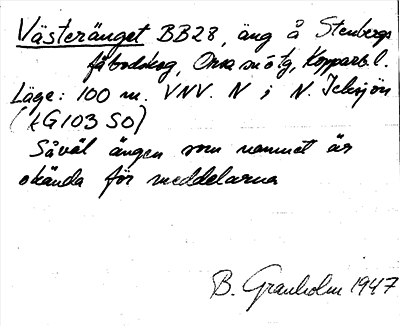 Västeränget BB28, äng å Stenbergs
fäbodskog, Orsa sn ö tg, Kopparb. l.
Läge: 100 m. VNV. N i N. Icksjön
(kG103 SO)
Såväl ängen som namnet är
okända för meddelarna
B. Granholm 1947